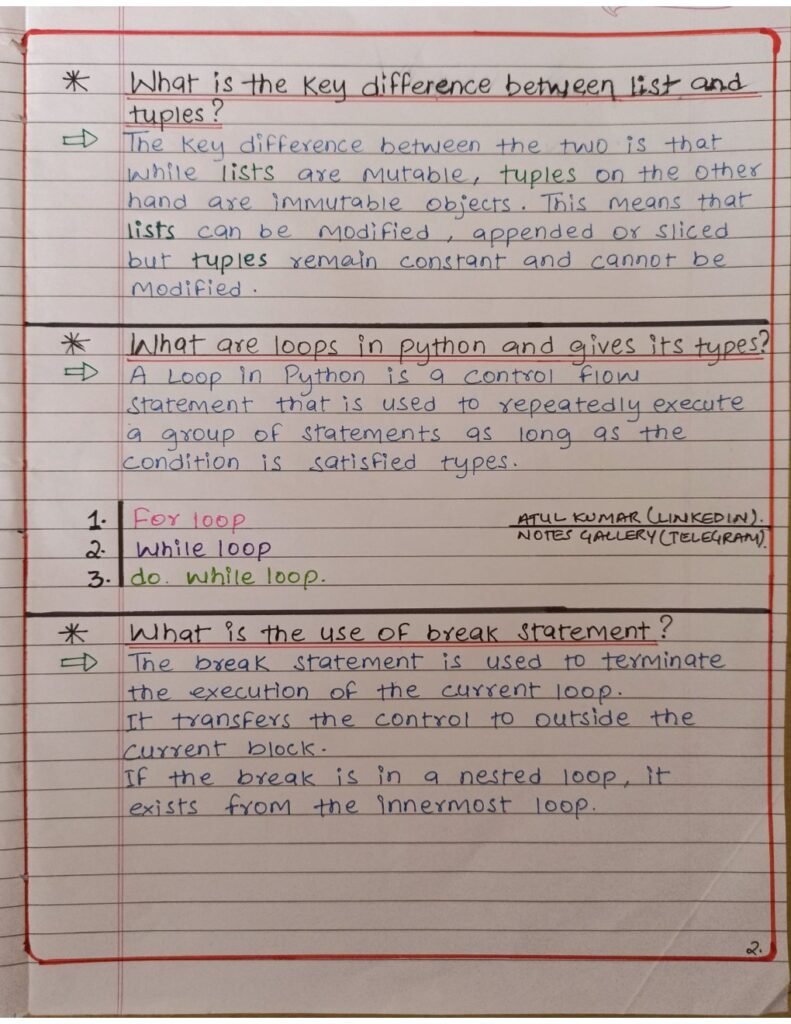 * What is the key difference between list and
tuples?
⇨ The key difference between the two is that
while lists are mutable, tuples on the other
hand are immutable objects. This means that
lists can be modified, appended or sliced
but tuples remain constant and cannot be
modified.
* What are loops in python and gives its types?
⇨ A Loop in Python is a control flow
statement that is used to repeatedly execute
a group of statements as long as the
condition is satisfied types.
1. For loop
2. While loop
3. do. while loop.
ATUL KUMAR (LINKEDIN).
NOTES GALLERY (TELEGRAM).
* What is the use of break statement?
⇨ The break statement is used to terminate
the execution of the current loop.
It transfers the control to outside the
current block.
If the break is in a nested loop, it
exists from the innermost loop.
2.